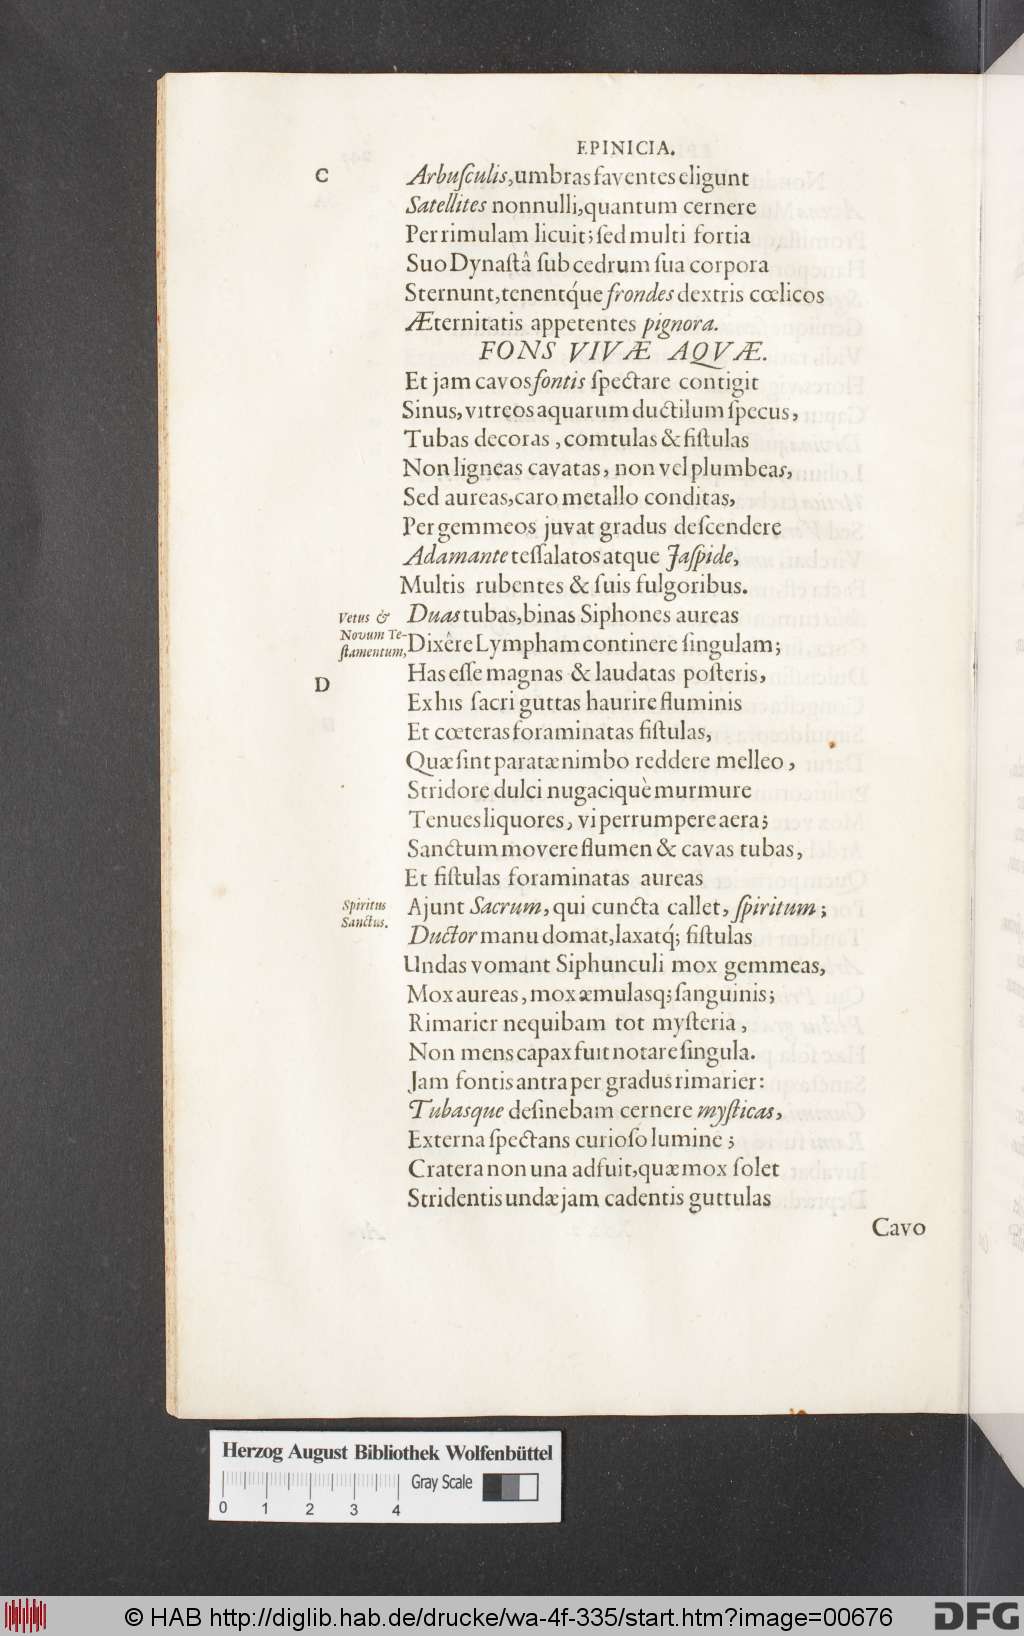 EPINICIA.
C
Arbuſculis,umbras faventes eligunt
Satellites nonnulli,quantum cernere
Per rimulam licuit; ſed multi fortia
Suo Dynaſtâ ſub cedrum ſua corpora
Sternunt,tenentq́ue frondes dextris cœlicos
Æternitatis appetentes pignora.
FONS VIVÆ AQVÆ.
Et jam cavos fontis ſpectare contigit
Sinus, vitreos aquarum ductilum ſpecus,
Tubas decoras , comtulas & fiſtulas
Non ligneas cavatas, non vel plumbeas,
Sed aureas,caro metallo conditas,
Per gemmeos juvat gradus deſcendere
Adamante teſſalatos atque Jaſpide,
Multis rubentes & ſuis fulgoribus.
Vetus &
Novum Te-
ſtamentum,
Duas tubas,binas Siphones aureas
Dixêre Lympham continere ſingulam;
Has eſſe magnas & laudatas poſteris,
D
Ex his ſacri guttas haurire fluminis
Et cœteras foraminatas fiſtulas,
Quæ ſint paratæ nimbo reddere melleo ,
Stridore dulci nugaciquè murmure
Tenues liquores, vi perrumpere aera;
Sanctum movere flumen & cavas tubas,
Et fiſtulas foraminatas aureas
Spiritus
Sanctus.
Ajunt Sacrum, qui cuncta callet, ſpiritum ;
Ductor manu domat,laxatq́; fiſtulas
Undas vomant Siphunculi mox gemmeas,
Mox aureas, mox æmulasq; ſanguinis;
Rimarier nequibam tot myſteria ,
Non mens capax fuit notare ſingula.
Jam fontis antra per gradus rimarier:
Tubasque deſinebam cernere myſticas,
Externa ſpectans curioſo lumine ;
Cratera non una adfuit,quæ mox ſolet
Stridentis undæ jam cadentis guttulas
Cavo
Herzog August Bibliothek Wolfenbüttel
Gray Scale
0 1 2 3 4
© HAB http://diglib.hab.de/drucke/wa-4f-335/start.htm?image=00676
DFG